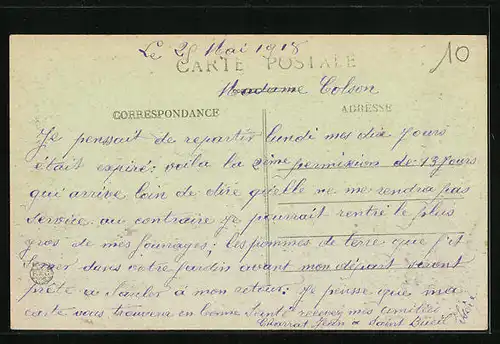 Le 28 Mai 1918
10
CARTE POSTALE
Madame Colson
CORRESPONDANCE
ADRESSE
Je pensait de repartir lundi mes dix jours
était expiré; voila la 2ième permixion de 13 jours
qui arrive loin de dire qu'elle ne me rendra pas
service au contraire je pourrait rentré le plus
gros de mes fourages; les pommes de terre que j'ai
semer dans votre jardin avant mon départ seront
prête a à mon retour; Je pense que ma
carte vous trouvera en bonne Santé recevez mes
Charrat à Saint